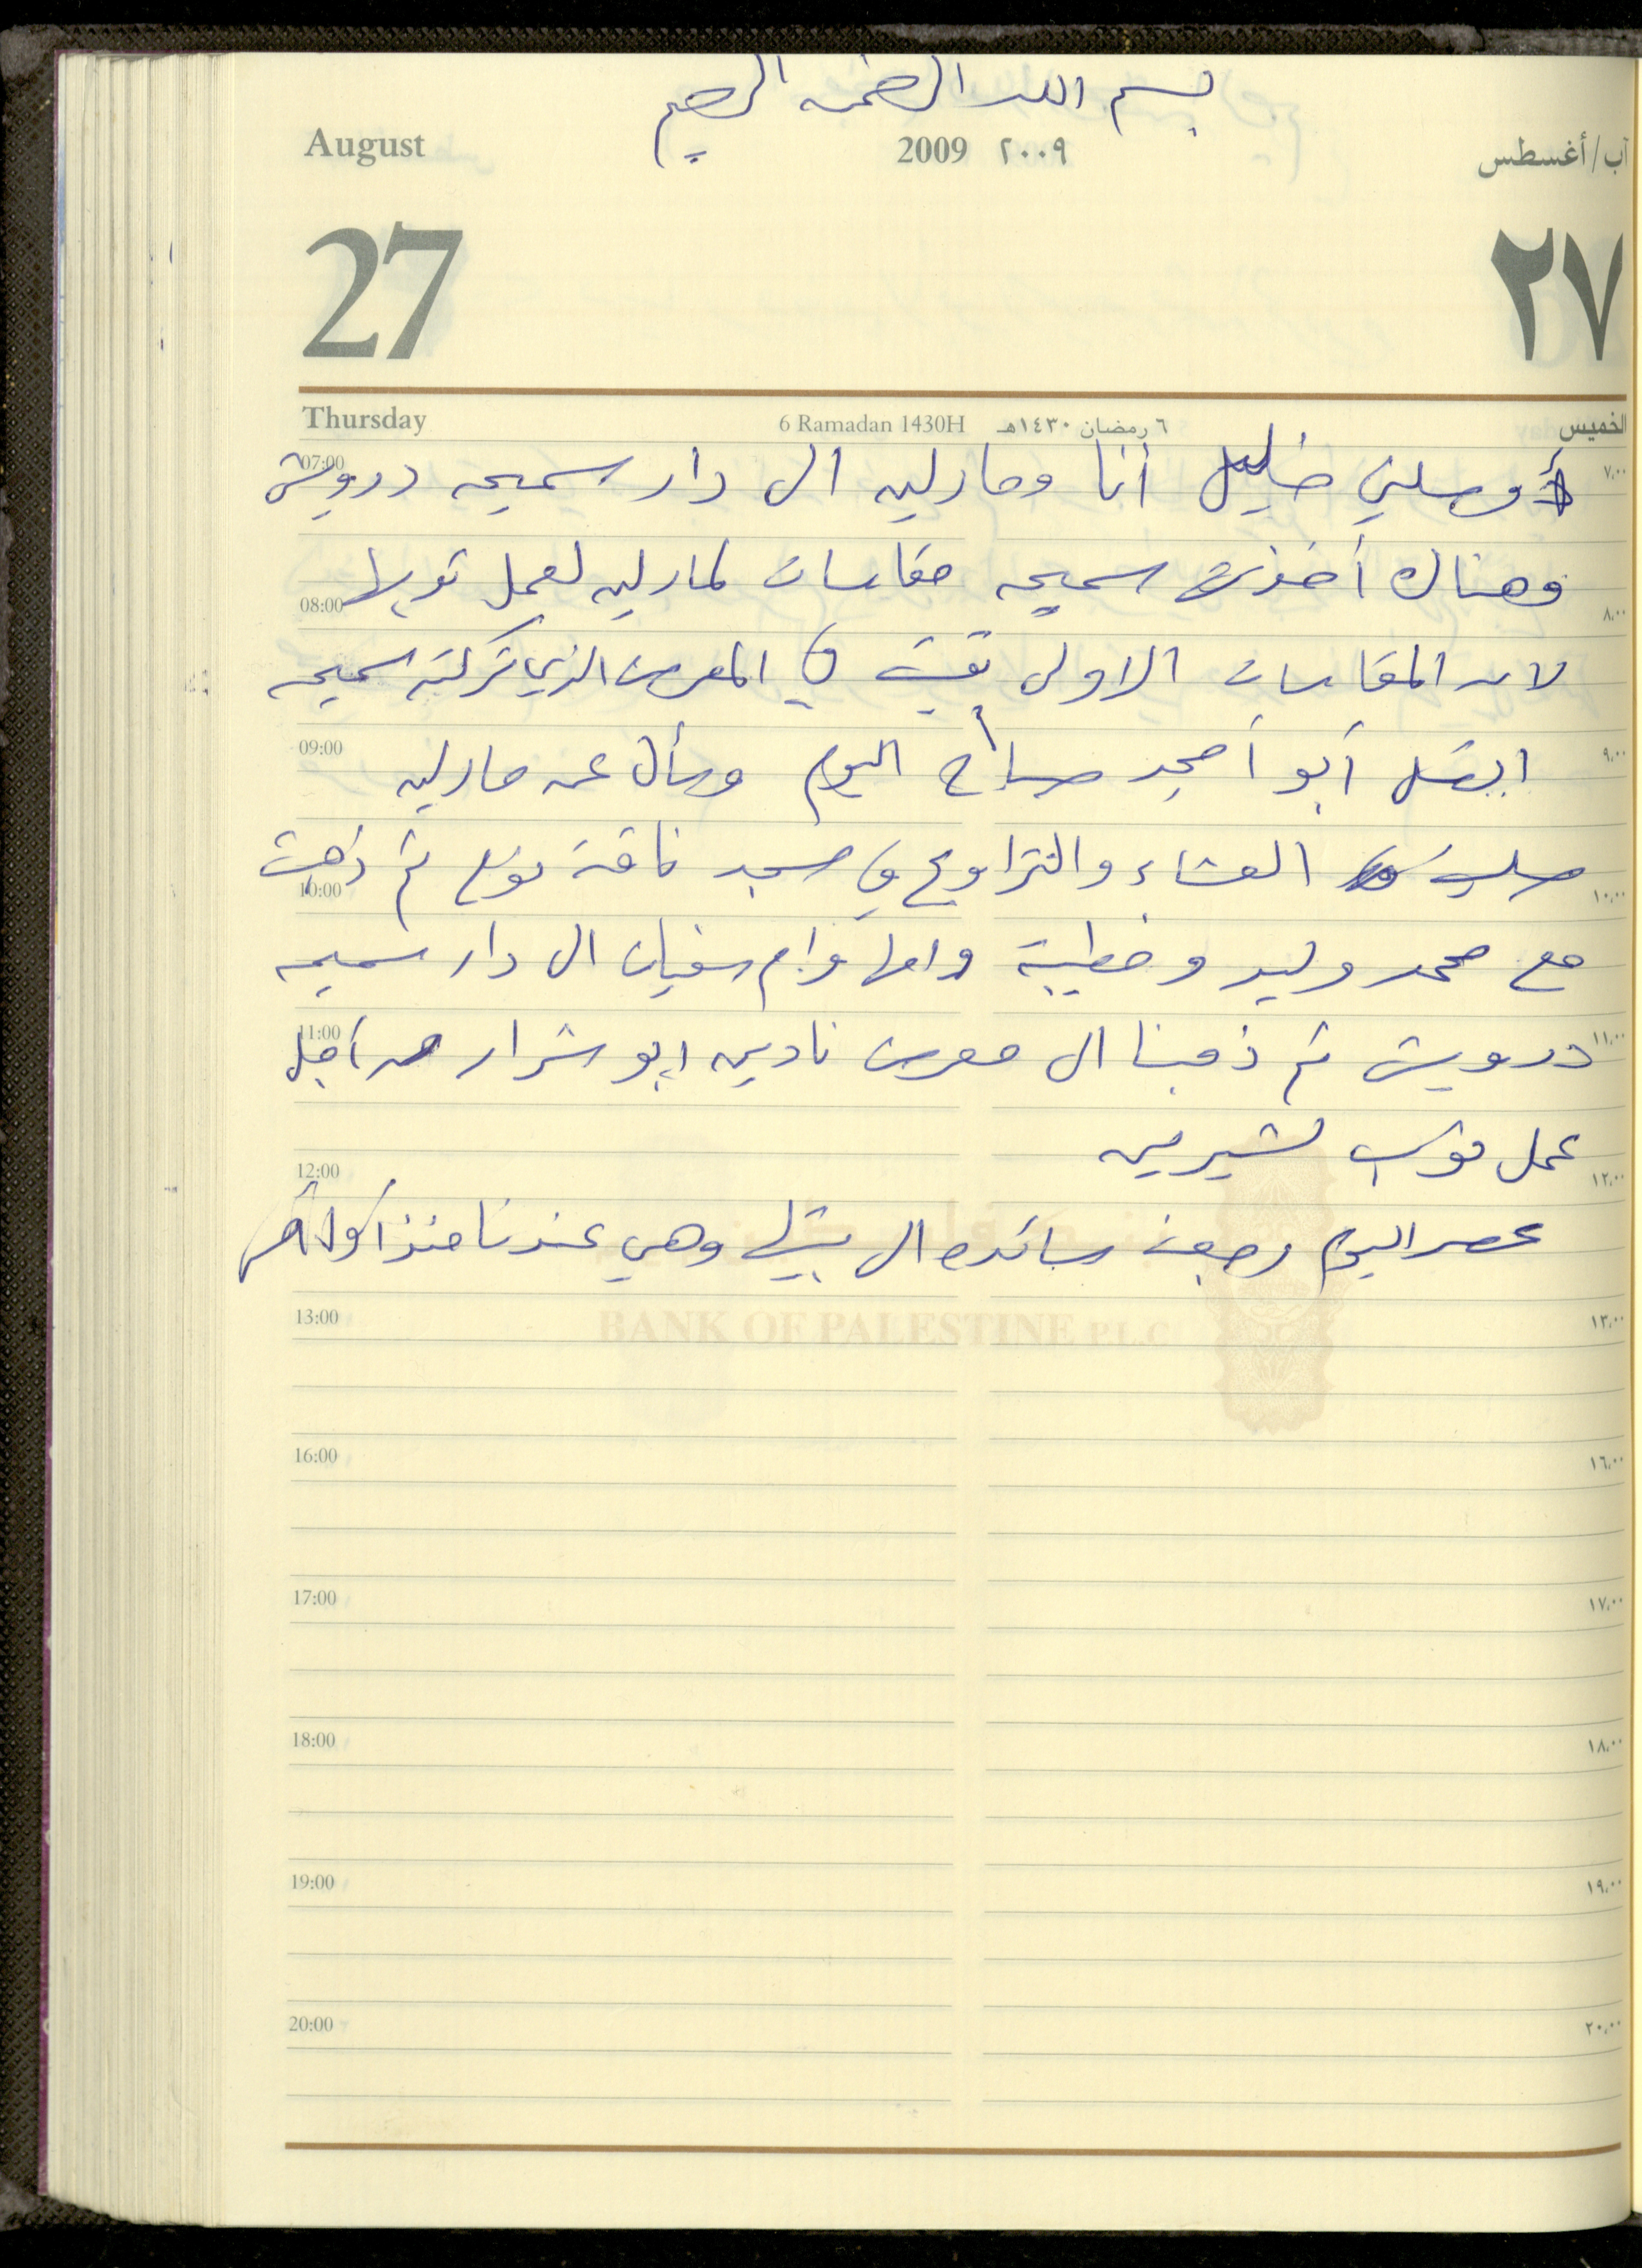 بسم الله الرحمن الرحيم
August 2009 ٢٠٠٩ آب/أغسطس
27 ٢٧
Thursday 6 Ramadan 1430H ٦ رمضان ١٤٣٠هـ الخميس
07:00 أوصلني خليل أنا ومارلين الى دار سميحه درويش ٧,٠٠
وهناك أخذت سميحه مقاسات لمارلين لعمل ثوبها
08:00 ٨,٠٠
لان المقاسات الاولى بقيت في المعرض الذي تركته سميحه
09:00 اتصل أبو أمجد صباح اليوم وسأل عن مارلين ٩,٠٠
صليت العشاء والتراويح في مسجد ثم ذهبت
10:00 ١٠,٠٠
مع محمد وليد وخطيبة وامها وام سفيان الى دار سميحه
11:00 درويش ثم ذهبنا الى معرض نادين ابو شرار من أجل ١١,٠٠
عمل ثوب لشيرين
12:00 ١٢,٠٠
عصر اليوم رجعت سائده الى بيتها وهي عندنا منذ أول أمس
BANK OF PALESTINE P.L.C
13:00 ١٣,٠٠
16:00 ١٦,٠٠
17:00 ١٧,٠٠
18:00 ١٨,٠٠
19:00 ١٩,٠٠
20:00 ٢٠,٠٠